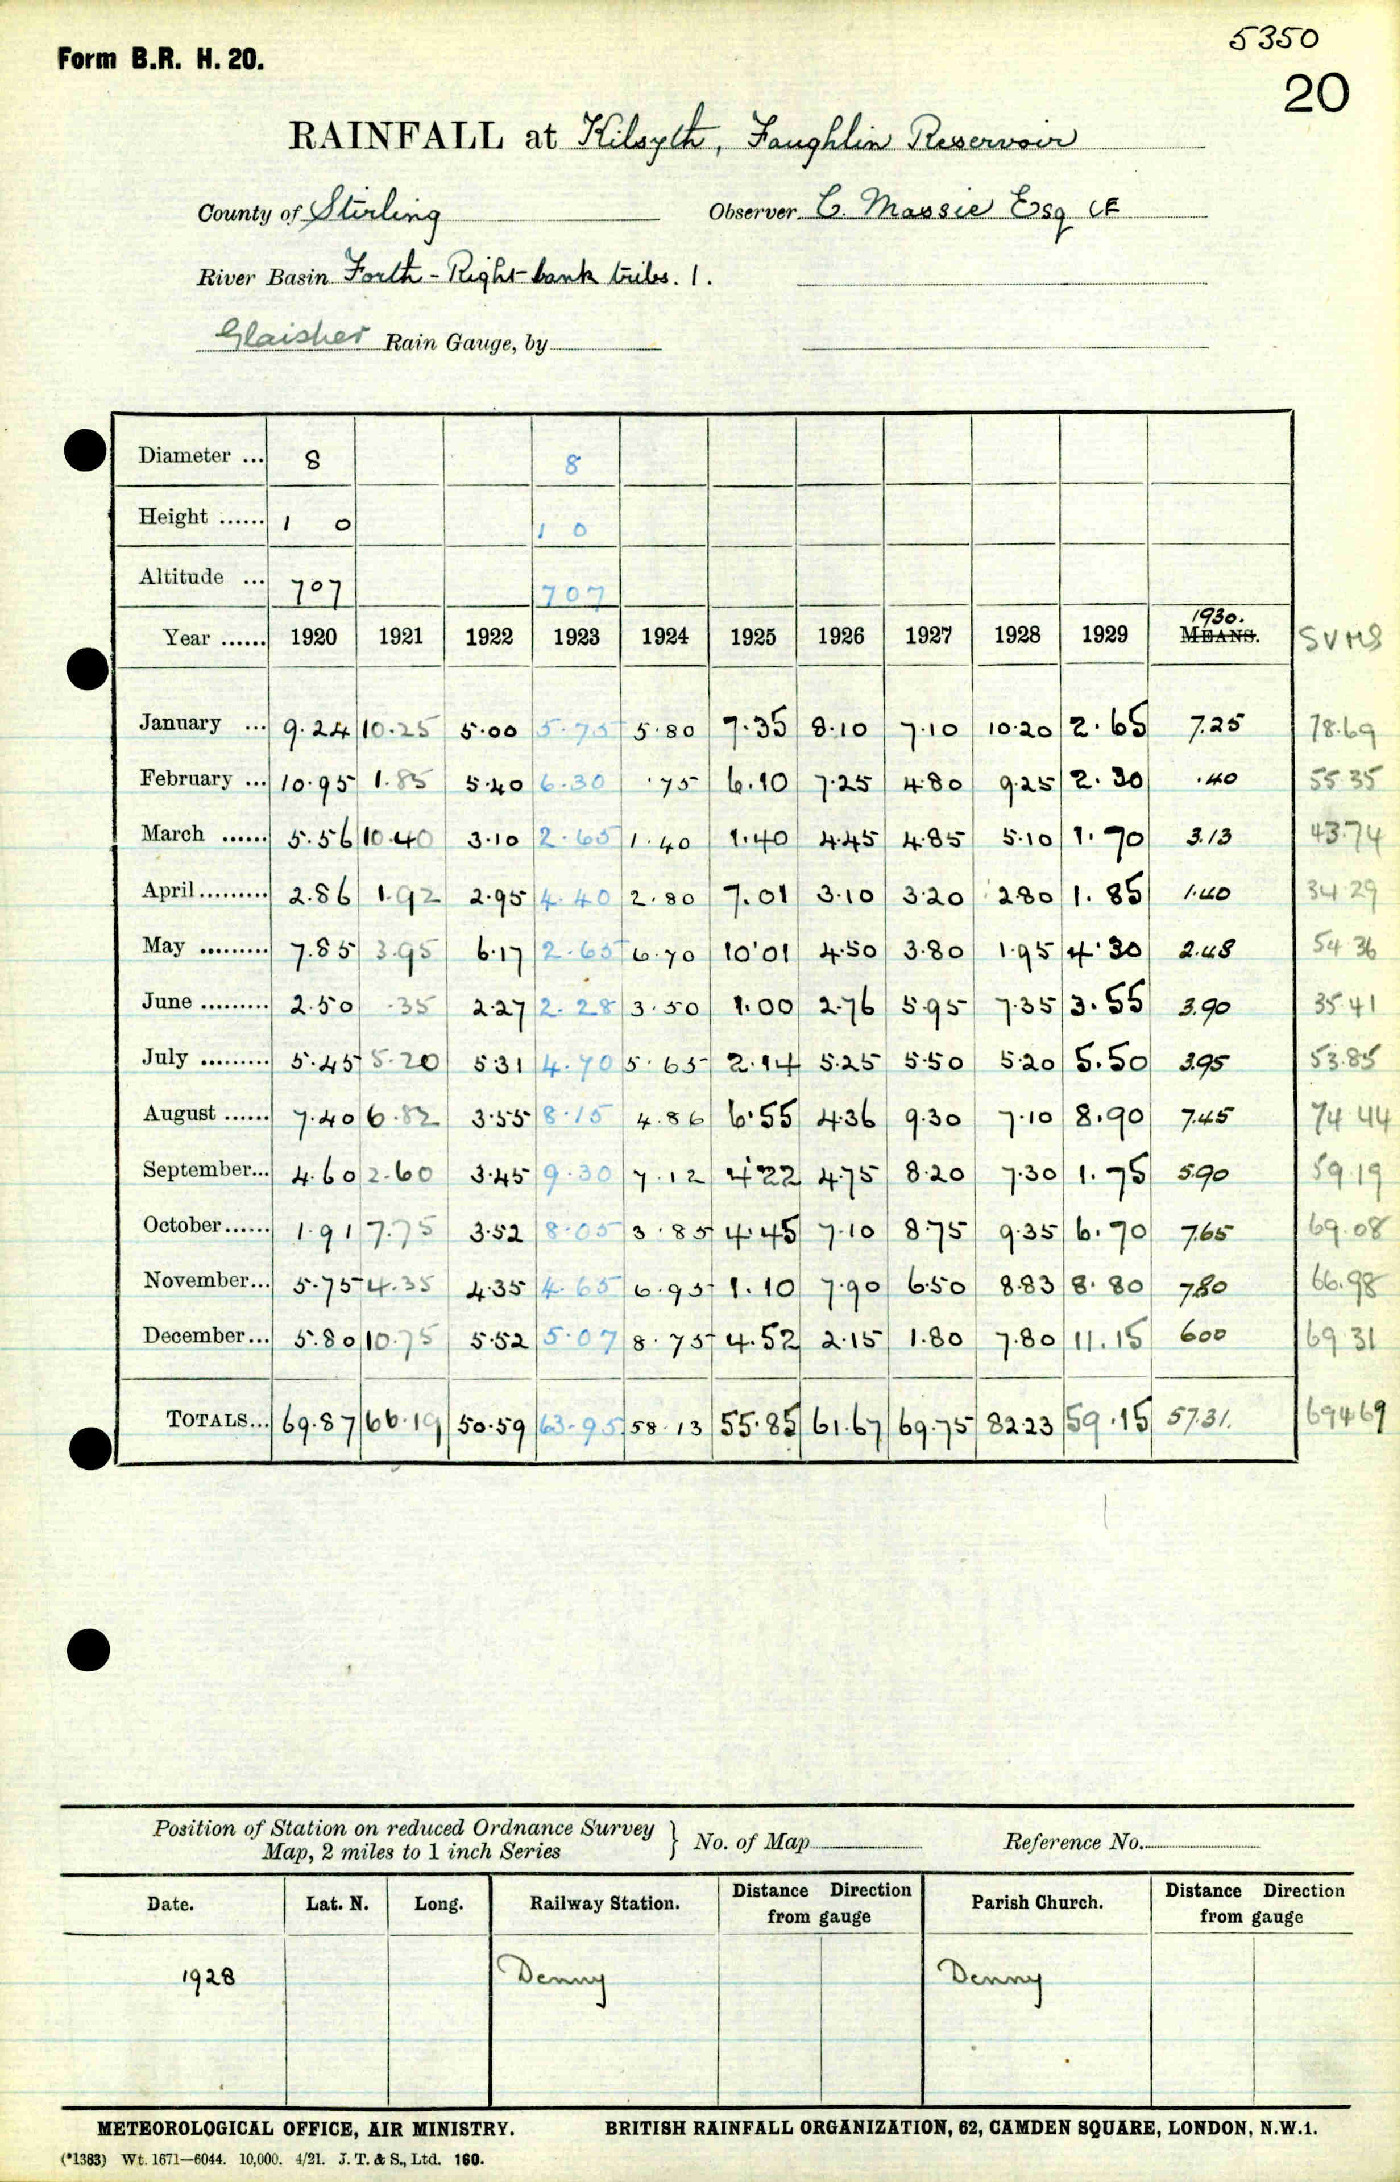 5350
Form B.R. H. 20.
20
RAINFALL at Kilsyth, Faughlin Reservoir
County of Stirling Observer C. Massie Esq CE
River Basin Forth - Right bank tribs. 1.
Glaisher Rain Gauge, by
Diameter ... 8 8
Height ...... 1 0 1 0
Altitude ... 707 707
Year ...... 1920 1921 1922 1923 1924 1925 1926 1927 1928 1929 1930. MEANS. SUMS
January ... 9.24 10.25 5.00 5.75 5.80 7.35 8.10 7.10 10.20 2.65 7.25 78.69
February ... 10.95 1.85 5.40 6.30 .75 6.10 7.25 4.80 9.25 2.30 .40 55.35
March ...... 5.56 10.40 3.10 2.65 1.40 1.40 4.45 4.85 5.10 1.70 3.13 43.74
April ......... 2.86 1.92 2.95 4.40 2.80 7.01 3.10 3.20 2.80 1.85 1.40 34.29
May ......... 7.85 3.95 6.17 2.65 6.70 10.01 4.50 3.80 1.95 4.30 2.48 54.36
June ......... 2.50 .35 2.27 2.28 3.50 1.00 2.76 5.95 7.35 3.55 3.90 35.41
July ......... 5.45 5.20 5.31 4.70 5.65 2.14 5.25 5.50 5.20 5.50 3.95 53.85
August ...... 7.40 6.82 3.55 8.15 4.86 6.55 4.36 9.30 7.10 8.90 7.45 74.44
September... 4.60 2.60 3.45 9.30 7.12 4.22 4.75 8.20 7.30 1.75 5.90 59.19
October...... 1.91 7.75 3.52 8.05 3.85 4.45 7.10 8.75 9.35 6.70 7.65 69.08
November... 5.75 4.35 4.35 4.65 6.95 1.10 7.90 6.50 8.83 8.80 7.80 66.98
December... 5.80 10.75 5.52 5.07 8.75 4.52 2.15 1.80 7.80 11.15 6.00 69.31
TOTALS... 69.87 66.19 50.59 63.95 58.13 55.85 61.67 69.75 82.23 59.15 57.31. 694.69
Position of Station on reduced Ordnance Survey
Map, 2 miles to 1 inch Series } No. of Map Reference No.
Date. Lat. N. Long. Railway Station. Distance Direction from gauge Parish Church. Distance Direction from gauge
1928 Denny Denny
METEOROLOGICAL OFFICE, AIR MINISTRY. BRITISH RAINFALL ORGANIZATION, 62, CAMDEN SQUARE, LONDON, N.W.1.
(*1383) Wt. 1671—6044. 10,000. 4/21. J. T. & S., Ltd. 160.